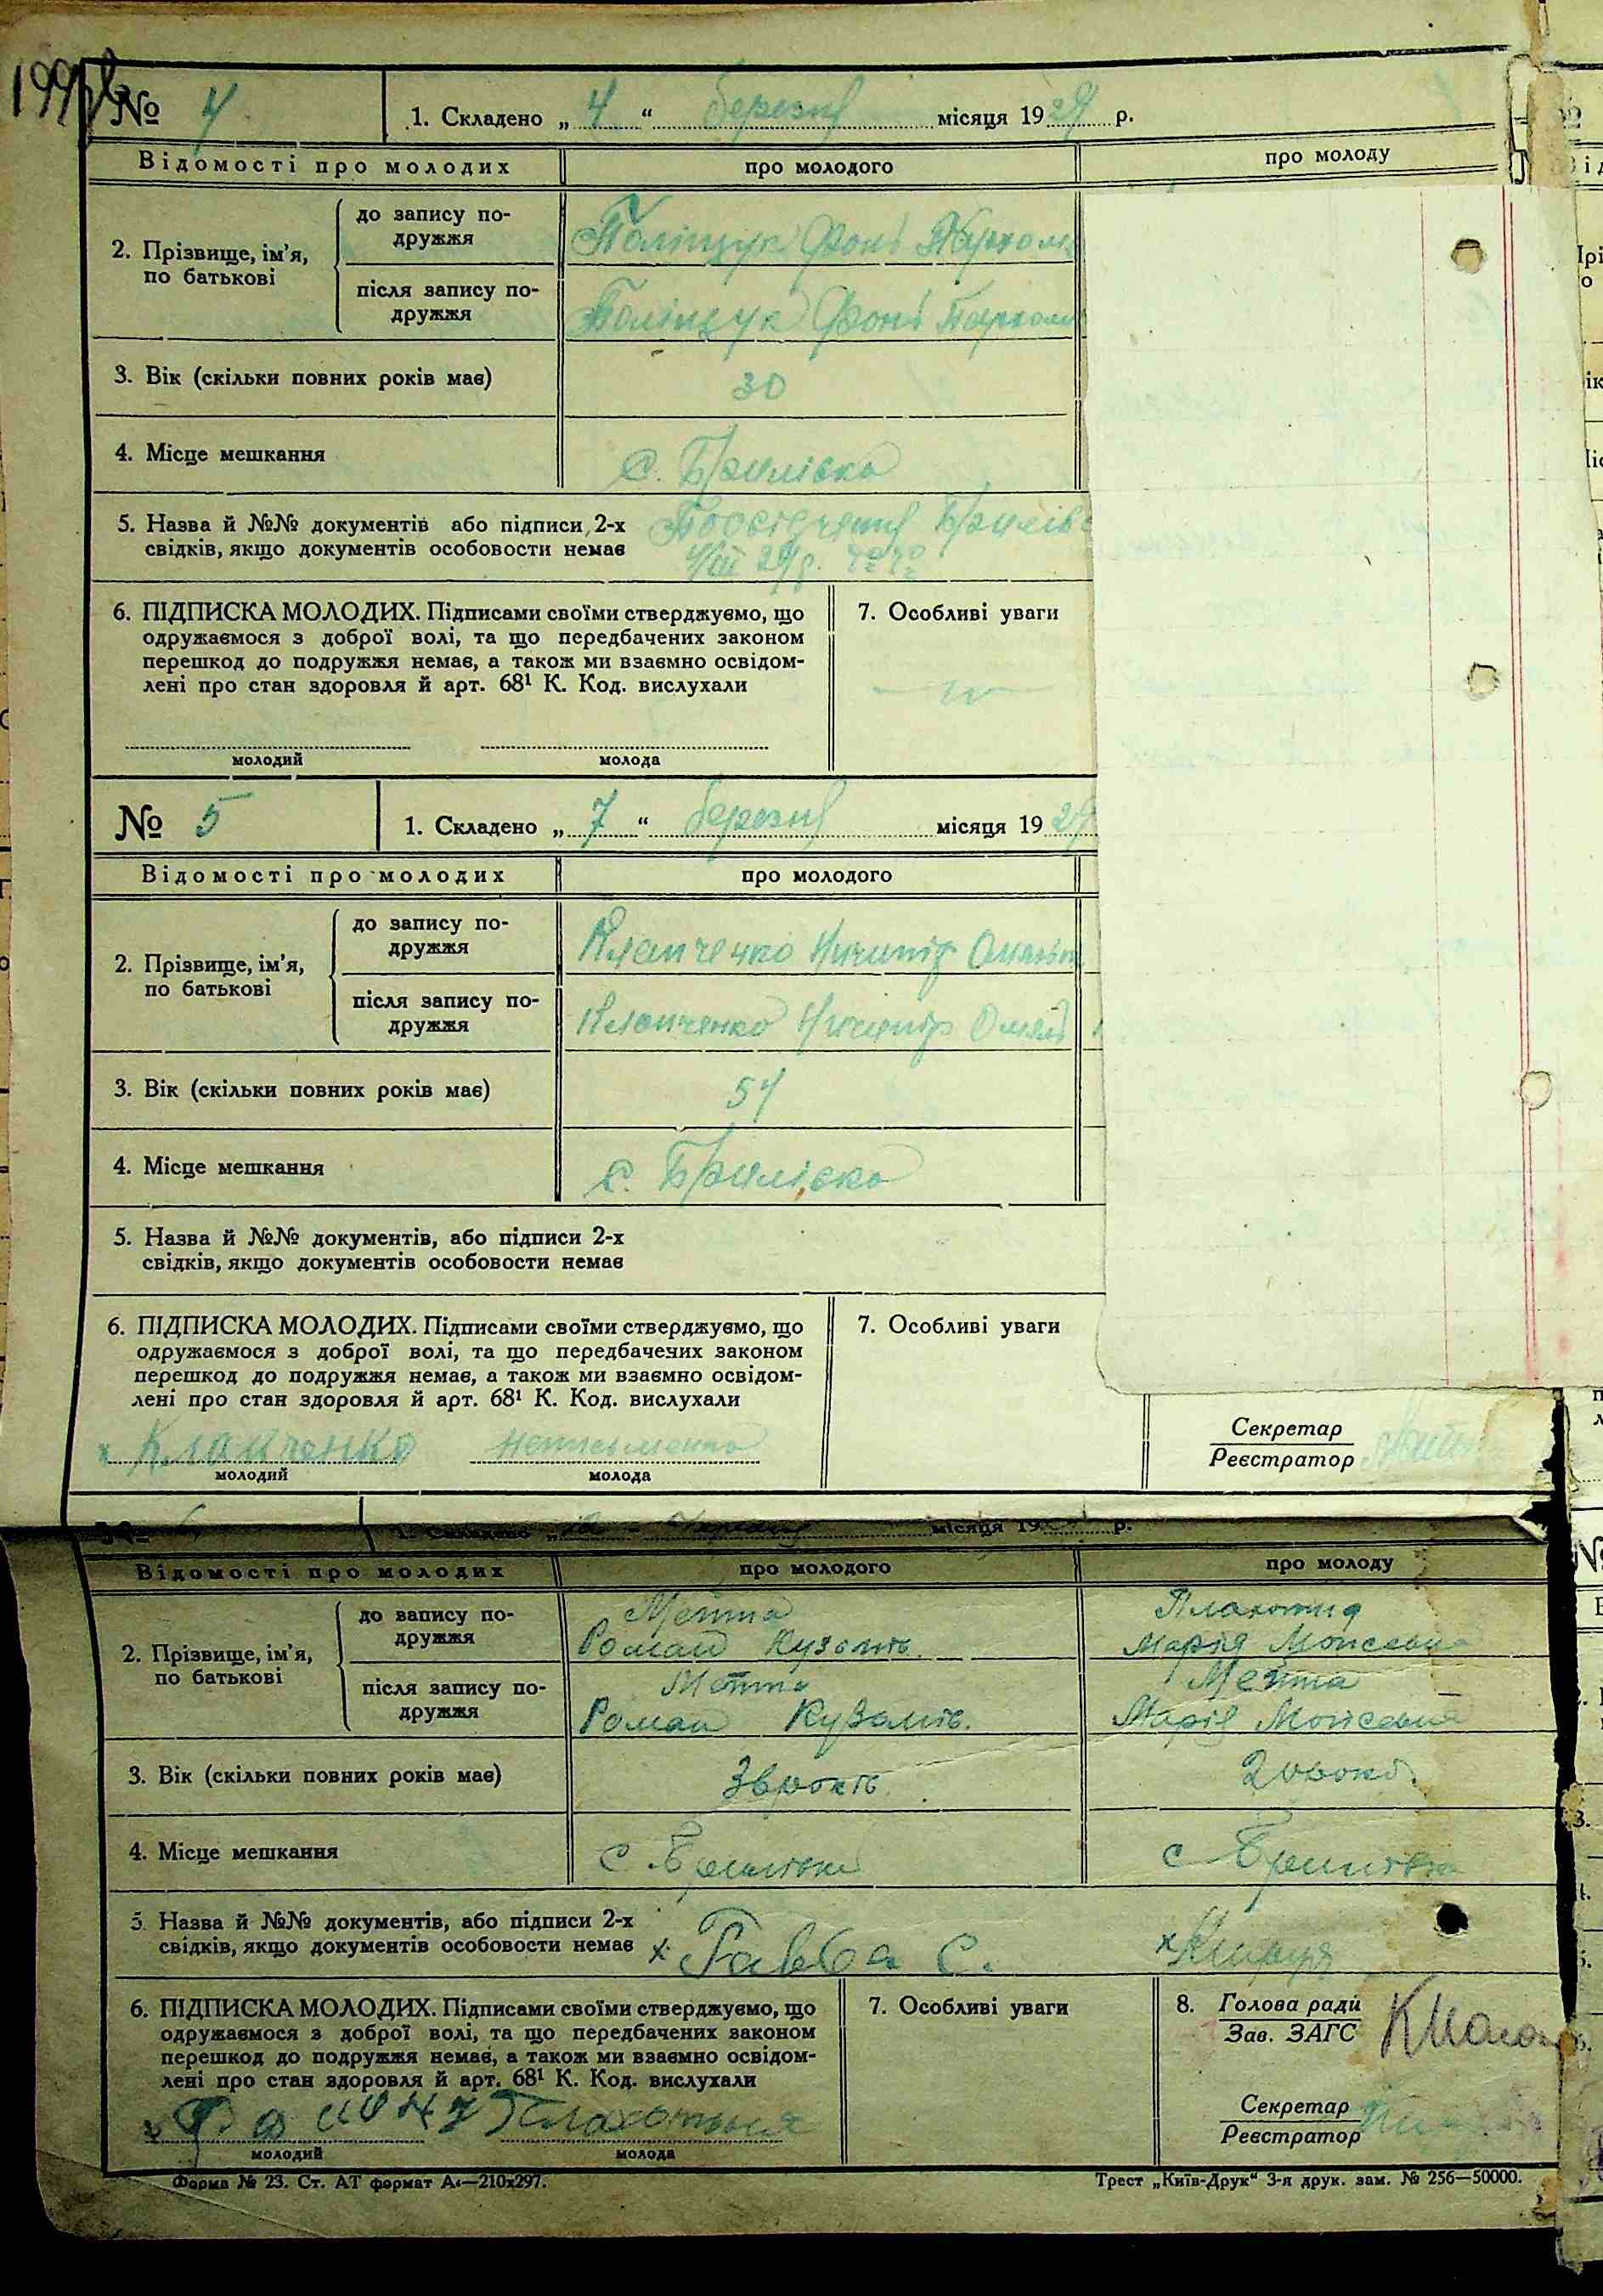 № 4 1. Складено „ 4 “ березня місяця 19 29 р.
Відомості про молодих про молодого про молоду
2. Прізвище, ім’я, по батькові
до запису по-
дружжя
Поліщук Фокі Пархом
після запису по-
дружжя
Поліщук Фокі Пархом
3. Вік (скільки повних років має) 30
4. Місце мешкання с. Брилівка
5. Назва й №№ документів або підписи 2-х Посвідчення Брилів
свідків, якщо документів особовости немає
6. ПІДПИСКА МОЛОДИХ. Підписами своїми стверджуємо, що
одружаємося з доброї волі, та що передбачених законом
перешкод до подружжя немає, а також ми взаємно освідом-
лені про стан здоровля й арт. 68¹ К. Код. вислухали
молодий молода
7. Особливі уваги
№ 5 1. Складено „ 7 “ березня місяця 19 29
Відомості про молодих про молодого
2. Прізвище, ім’я,
по батькові
до запису по-
дружжя
Клапченко Ничипір
після запису по-
дружжя
Клапченко Ничипір
3. Вік (скільки повних років має) 54
4. Місце мешкання с. Брилівка
5. Назва й №№ документів, або підписи 2-х
свідків, якщо документів особовости немає
6. ПІДПИСКА МОЛОДИХ. Підписами своїми стверджуємо, що
одружаємося з доброї волі, та що передбачених законом
перешкод до подружжя немає, а також ми взаємно освідом-
лені про стан здоровля й арт. 68¹ К. Код. вислухали
х Клапченко неписьменна
молодий молода
7. Особливі уваги
Секретар
Реєстратор
1. Складено місяця 19 р.
Відомості про молодих про молодого про молоду
2. Прізвище, ім’я,
по батькові
до запису по-
дружжя
Мейта Плахотня
Роман Кузьмів. Марія Мойсеєвна
після запису по-
дружжя
Мейта Мейта
Роман Кузьмів. Марія Мойсеєвна
3. Вік (скільки повних років має) років
4. Місце мешкання с Брилівка с Брилівка
5. Назва й №№ документів, або підписи 2-х
свідків, якщо документів особовости немає х Гавба С. х
6. ПІДПИСКА МОЛОДИХ. Підписами своїми стверджуємо, що
одружаємося з доброї волі, та що передбачених законом
перешкод до подружжя немає, а також ми взаємно освідом-
лені про стан здоровля й арт. 68¹ К. Код. вислухали
Плахотня
молодий молода
7. Особливі уваги
8. Голова ради
Зав. ЗАГС
Секретар
Реєстратор
Форма № 23. Ст. АТ формат А₄—210х297.
Трест „Київ-Друк“ 3-я друк. зам. № 256—50000.